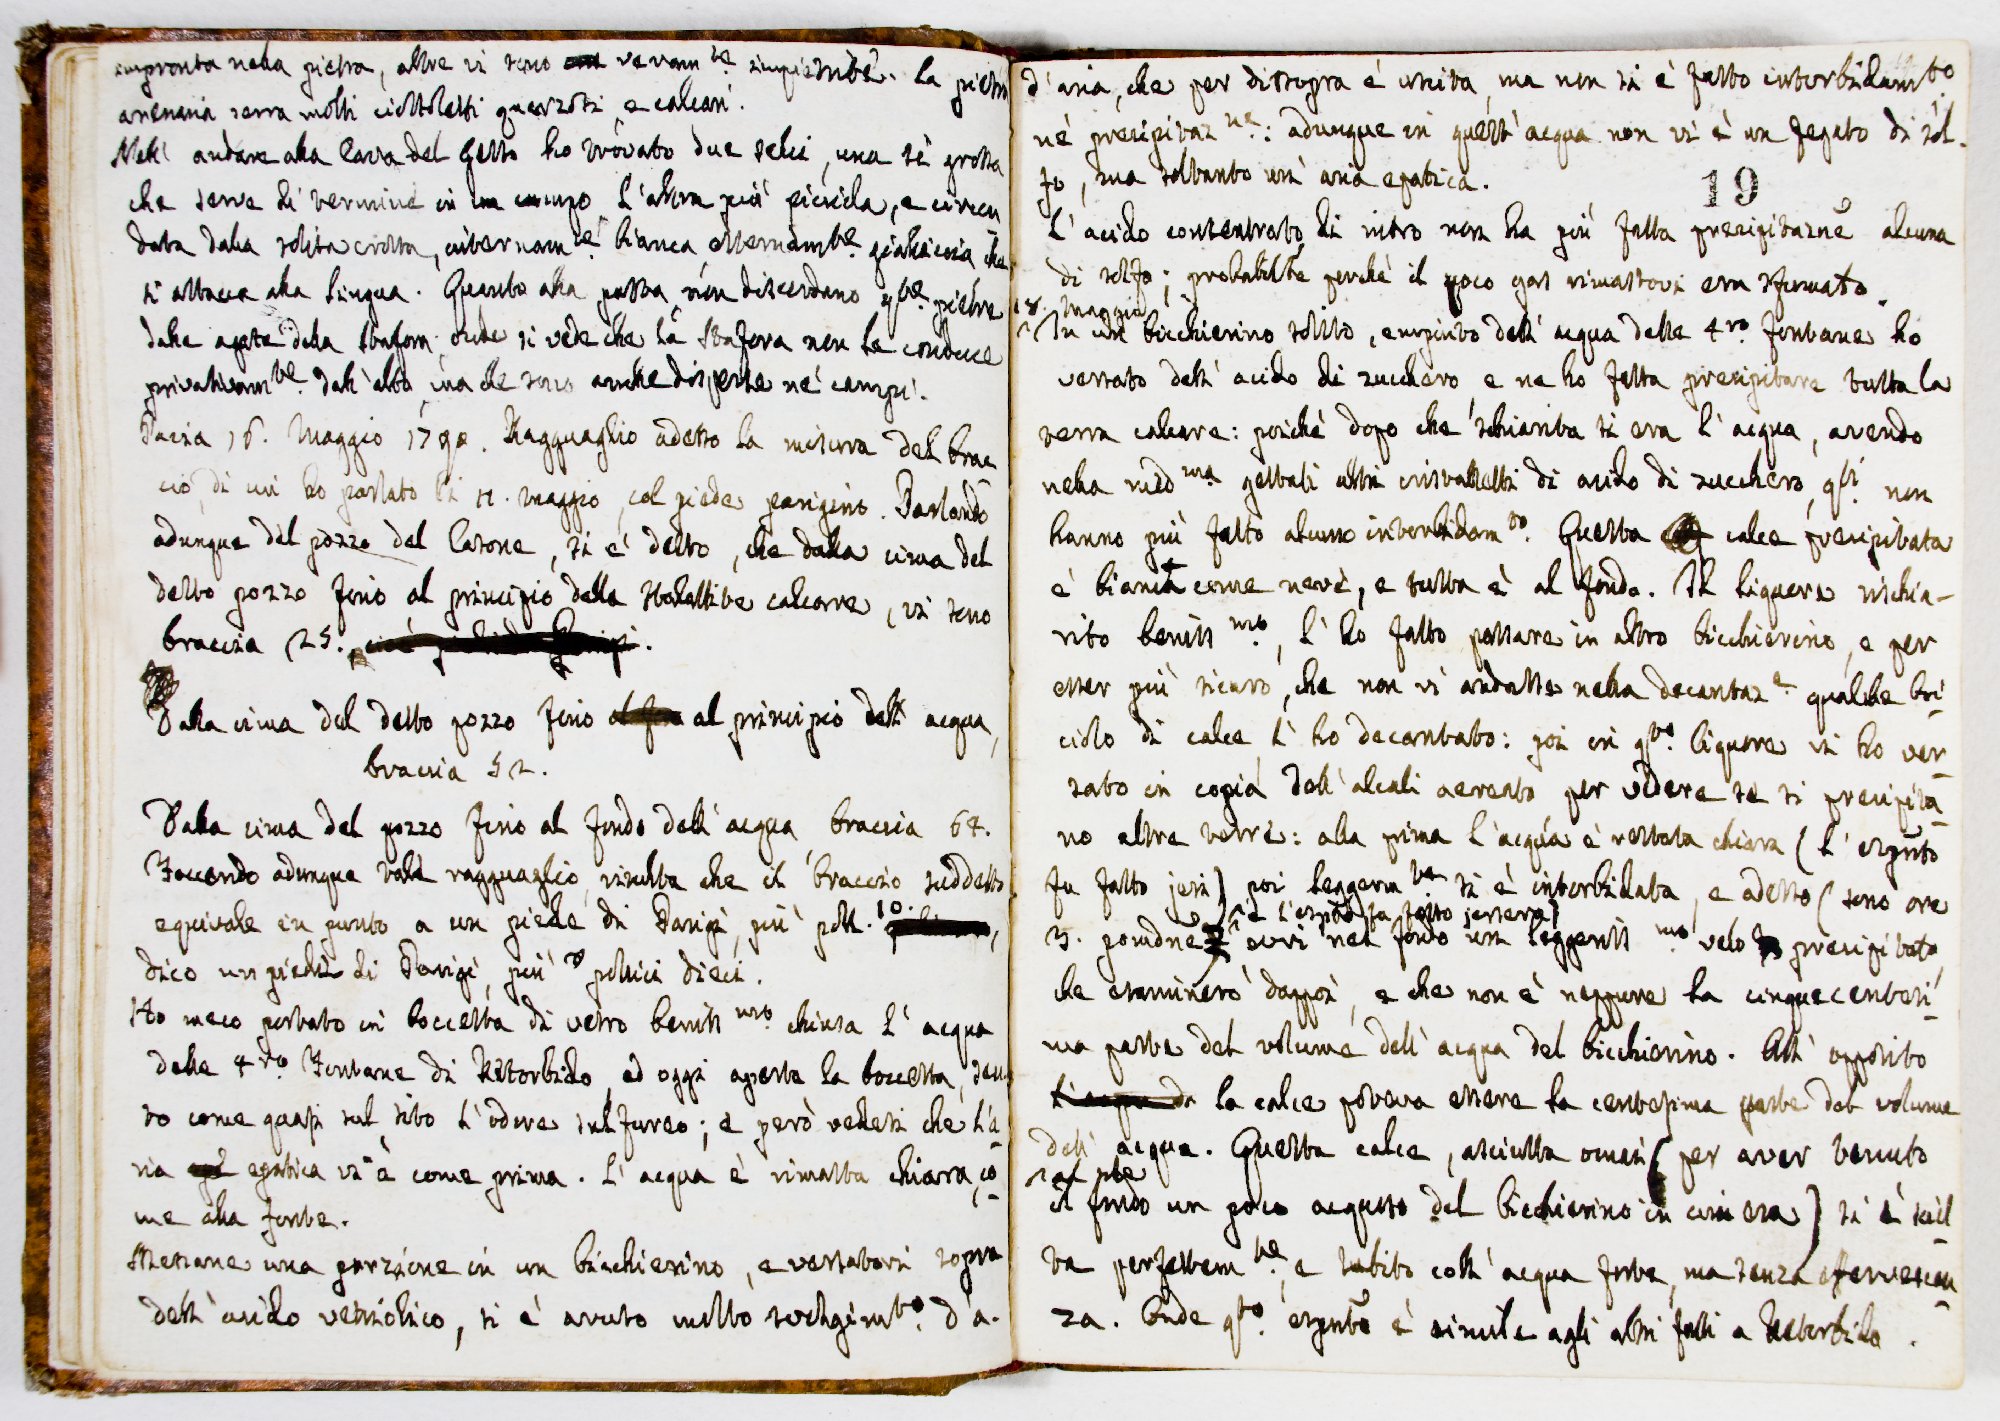 impronta nella pietra, altre vi sono veram.te impietrite. la pietra
arenaria serra molti ciottoletti quarzosi e calcari.
Nell' andare alla cava del Gesso ho trovato due selci, una sì grossa
che serve di termine in un campo l'altra più picciola, e circon
data dalla solita crosta, internam.te bianca, esternam.te gialliccia che
si attacca alla lingua. Quanto alla pasta non discordano q.te pietre
dalle agate della Staffora, onde si vede che la Staffora non le conduce
privativam.te dall' alto, ma che sono anche disperse ne' campi.
Pavia 16. Maggio 1790. Ragguaglio adesso la misura del brac
cio, di cui ho parlato li 11. maggio, col piede parigino. Parlando
adunque del pozzo del Casone, si è detto, che dalla cima del
detto pozzo fino al principio delle stalattite calcare, vi sono
braccia 25.
Dalla cima del detto pozzo fino al principio dell' acqua,
braccia 52.
Dalla cima del pozzo fino al fondo dell' acqua braccia 64.
Facendo adunque tale ragguaglio, risulta che il braccio suddetto
equivale in punto a un piede di Parigi, più poll. 10.
dico un piede di Parigi, più pollici dieci.
Ho meco portato in boccetta di vetro beniss.mo chiusa l' acqua
delle 4.ro Fontane di Retorbido, ed oggi aperta la boccetta, sen
to come quasi sul sito l' odore sulfureo; e però vedesi che l'a-
ria epatica vi è come prima. L' acqua è rimasta chiara, co-
me alla fonte.
Messane una porzione in un bicchierino, e versatovi sopra
dell' acido vetriolico, si è avuto molto svolgim.to d' a-
d' aria, che per dissopra è uscita, ma non si è fatto intorbidam.to
nè precipitaz.ne: adunque in quest' acqua non vi è un fegato di sol-
fo, ma soltanto un' aria epatica.
19
L' acido concentrato di nitro non ha più fatta precipitazne alcuna
di solfo; probabilte perchè il poco gas rimastovi era sfumato.
18. Maggio
In un bicchierino solito, empiuto dell' acqua delle 4.ro fontane ho
versato dell' acido di zucchero e ne ho fatta precipitare tutta la
terra calcare: poichè dopo che schiarita si era l' acqua, avendo
nella medma gettati altri cristalletti di acido di zucchero, q.ti non
hanno più fatto alcuno intorbidam.to. Questa calce precipitata
è bianca come neve, e tutta è al fondo. Il liquore rischia-
rito beniss.mo, l' ho fatto passare in altro bicchierino, e per
esser più sicuro, che non vi andasse nella decantaz.e qualche bri
ciolo di calce l' ho decantato: poi in q.to liquore vi ho ver-
sato in copia dell' alcali aereato per vedere se si precipita-
no altre terre: alla prima l' acqua è restata chiara (l' espnto
fu fatto jeri) poi leggerm.te si è intorbidata, e adesso (sono ore
e l'espnto fu fatto jersera)
3. pomdne evvi nel fondo un leggeriss.mo velo precipitato
che esaminerò dappoi, e che non è neppure la cinquecentesi-
ma parte del volume dell' acqua del bicchierino. All' opposito
la calce poteva essere la centesima parte del volume
dell' acqua. Questa calce, asciutta omesi (per aver tenuto
il fondo un poco acquoso del bicchierino in cui era) si è sciol-
ta perfettam.te, e subito coll' acqua forte, ma senza effervescen-
za. Onde q.to espnto è simile agli altri fatti a Retorbido.